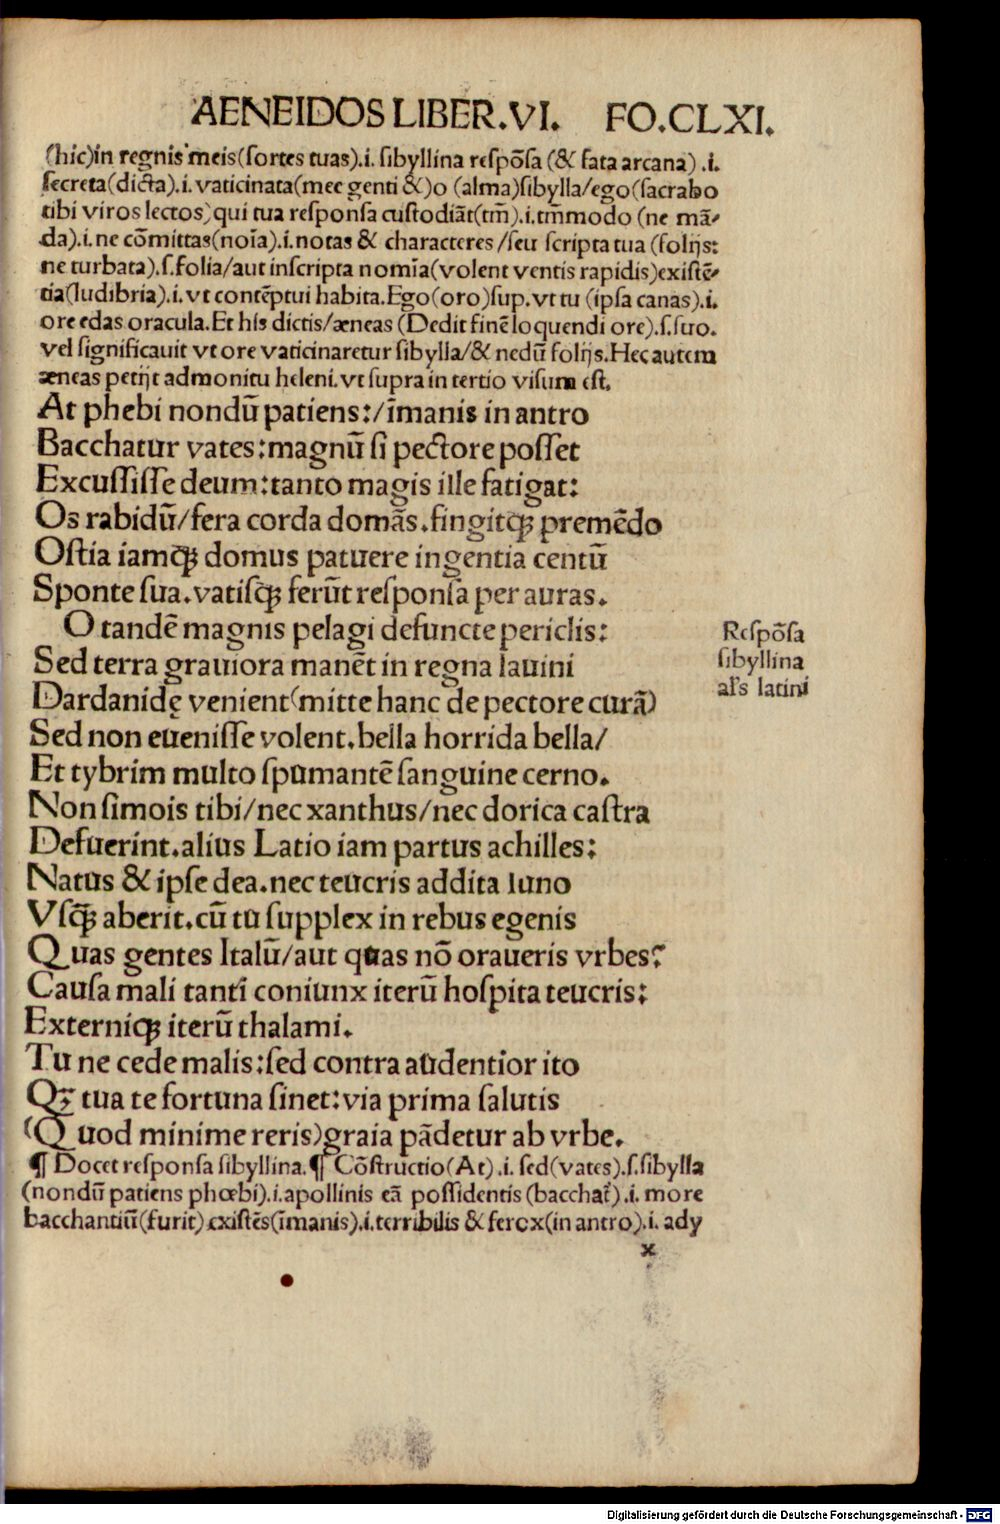 AENEIDOS LIBER.VI. FO.CLXI.
(hic)in regnis meis(sortes tuas).i. sibyllina respõsa (& fata arcana) .i.
secreta(dicta).i. vaticinata(mee genti &)o (alma)sibylla/ego(sacrabo
tibi viros lectos)qui tua responsa custodiãt(tm̃).i.tm̃modo (ne mã-
da).i. ne cõmittas(noĩa).i.notas & characteres/seu scripta tua (folijs:
ne turbata).s.folia/aut inscripta nomĩa(volent ventis rapidis)existẽ-
tia(ludibria).i. vt contẽptui habita.Ego(oro)sup.vt tu (ipsa canas).i.
ore edas oracula.Et his dictis/æneas (Dedit finẽ loquendi ore).s.suo.
vel significauit vt ore vaticinaretur sibylla/& nedũ folijs.Hec autem
æneas petijt admonitu heleni.vt supra in tertio visum est.
At phebi nondũ patiens:/ĩmanis in antro
Bacchatur vates:magnũ si pectore posset
Excussisse deum:tanto magis ille fatigat:
Os rabidũ/fera corda domãs.fingitqꝫ premẽdo
Ostia iamqꝫ domus patuere ingentia centũ
Sponte sua.vatisqꝫ ferũt responsa per auras.
O tandẽ magnis pelagi defuncte periclis:
Sed terra grauiora manẽt in regna lauini
Dardanidę venient(mitte hanc de pectore curã)
Sed non euenisse volent.bella horrida bella/
Et tybrim multo spumantẽ sanguine cerno.
Non simois tibi/nec xanthus/nec dorica castra
Defuerint.alius Latio iam partus achilles:
Natus & ipse dea.nec teucris addita Iuno
Vsqꝫ aberit.cũ tu supplex in rebus egenis
Quas gentes Italũ/aut quas nõ oraueris vrbes?
Causa mali tanti coniunx iterũ hospita teucris:
Externiqꝫ iterũ thalami.
Tu ne cede malis:sed contra audentior ito
Qꝫ tua te fortuna sinet:via prima salutis
(Quod minime reris)graia pãdetur ab vrbe.
¶ Docet responsa sibyllina.¶ Cõstructio(At).i. sed(vates).s.sibylla
(nondũ patiens phœbi).i.apollinis eã possidentis(bacchat̃).i. more
bacchantiũ(furit)existẽs(ĩmanis).i.terribilis & ferox(in antro).i. ady
x
Respõsa
sibyllina
al's latini
Digitalisierung gefördert durch die Deutsche Forschungsgemeinschaft - DFG